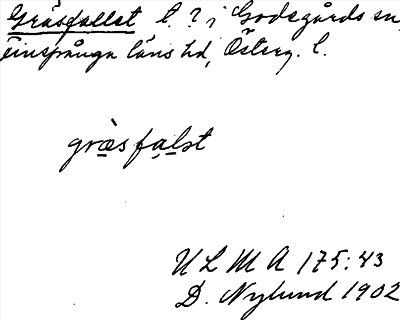 Gräsfallet l. ? i Godegårds sn,
Finspånga läns hd, Österg. l.
græ̀sfalst
ULMA 175:43
D. Nylund 1902